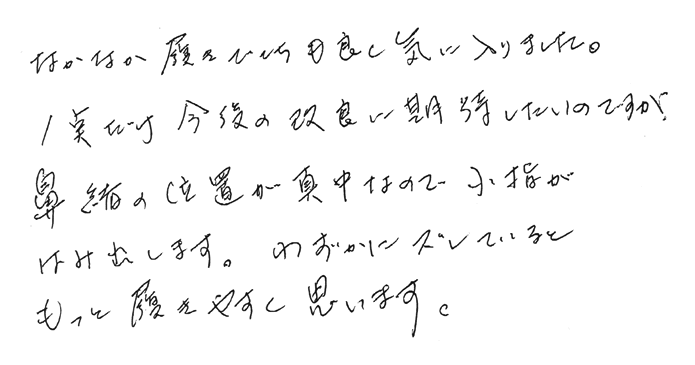 なかなか履きごこちも良く気に入りました。
1点だけ今後の改良に期待したいのですが、
鼻緒の位置が真中なので小指が
はみ出します。わずかにズレていると
もっと履きやすく思います。